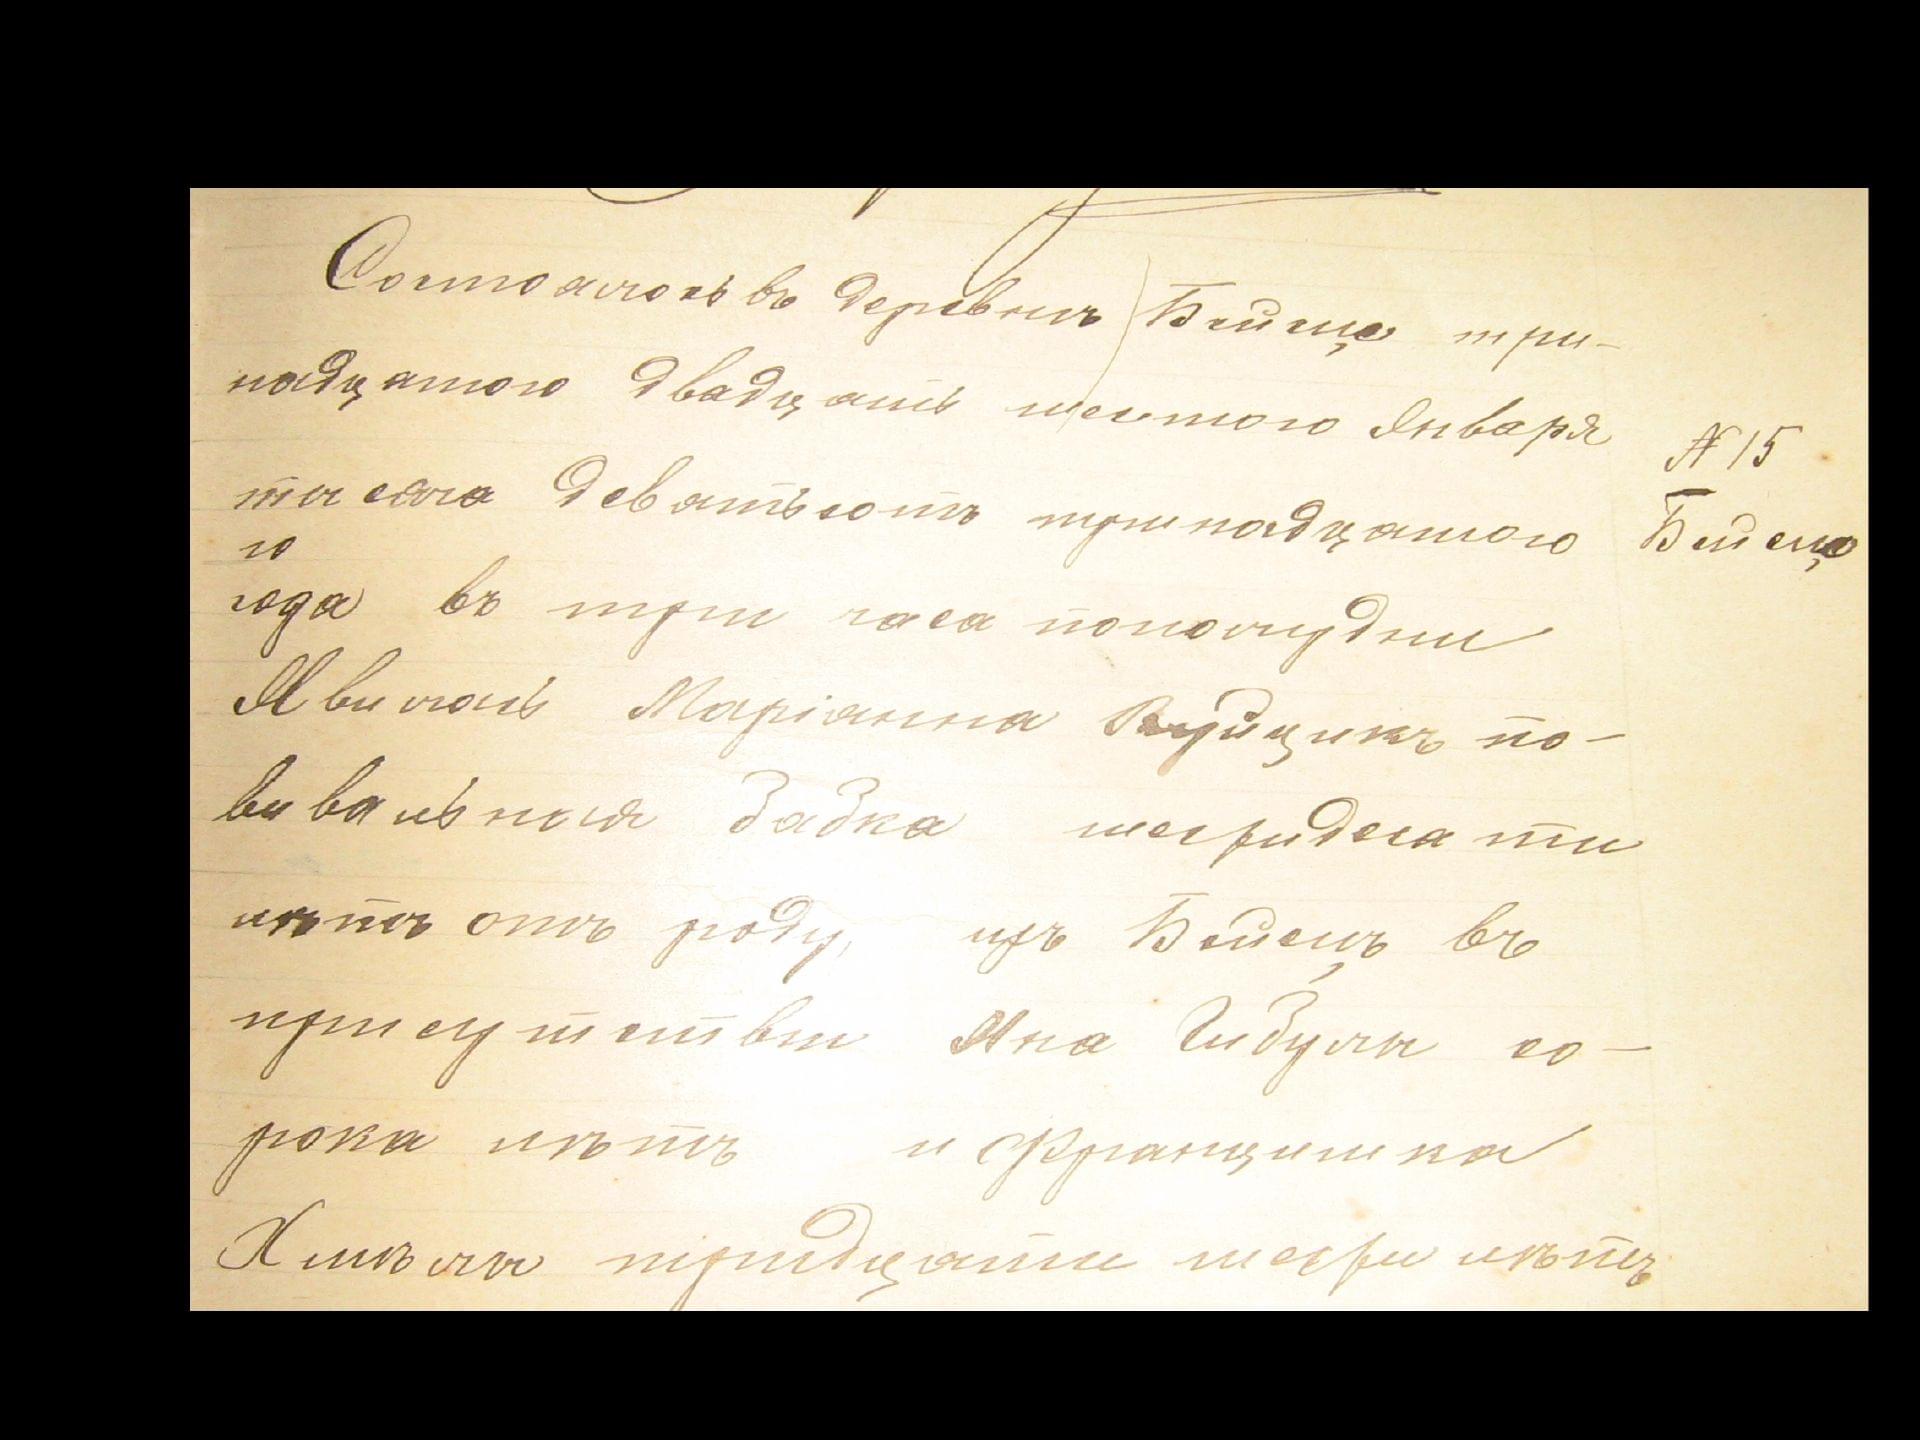 Состоялось въ деревнѣ Бейсце три-
надцатого двадцать шестого Января
№ 15
тысяча девятьсотъ тринадцатого
Бейсце
го
года въ три часа пополудни
Явилась Маріанна Вуйцикъ по-
вивальная бабка шестидесяти
лѣтъ отъ роду, изъ Бейсцъ въ
присутствіи Яна Цибули со-
рока лѣтъ и Францишка
Хмѣлы тридцати шести лѣтъ